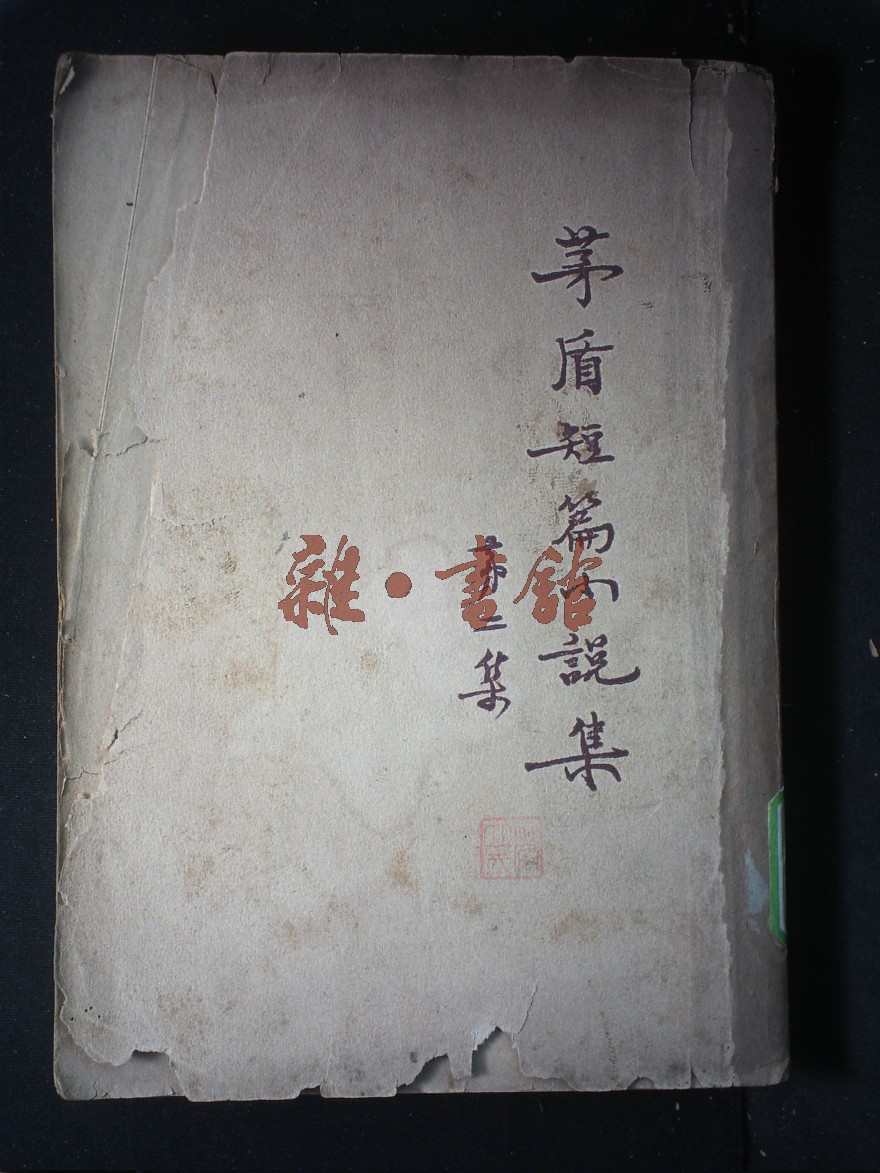 茅盾短篇小說集
第二集
雜·書館